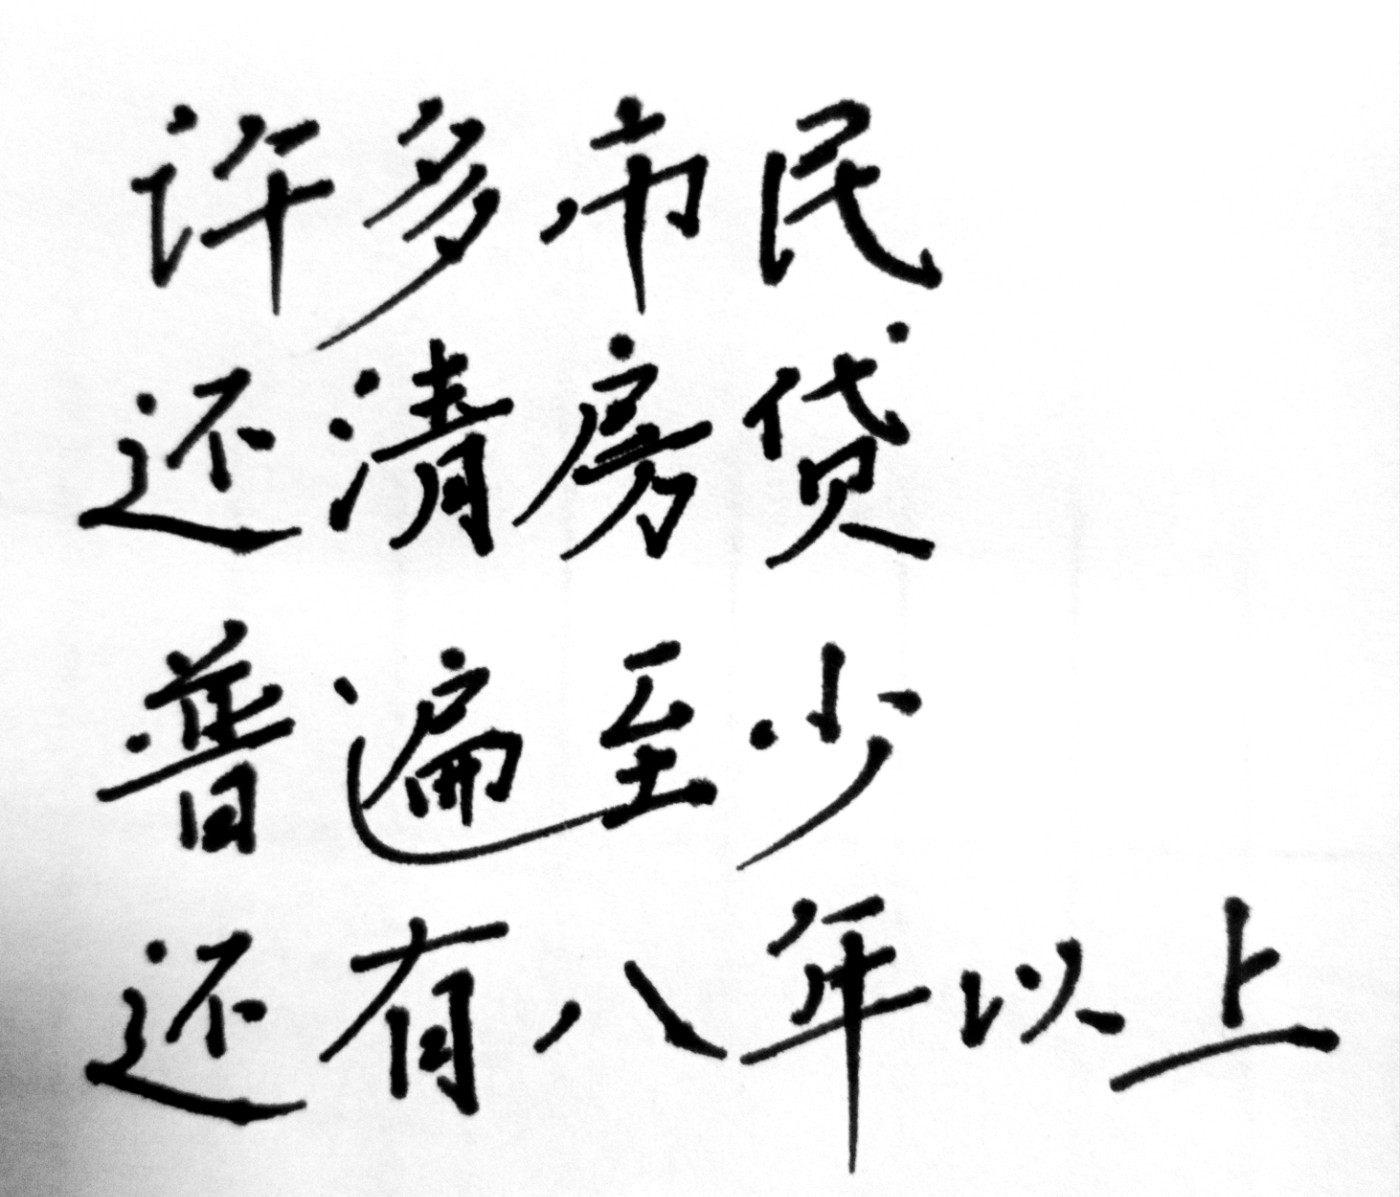 许多市民
还清房贷
普遍至少
还有八年以上